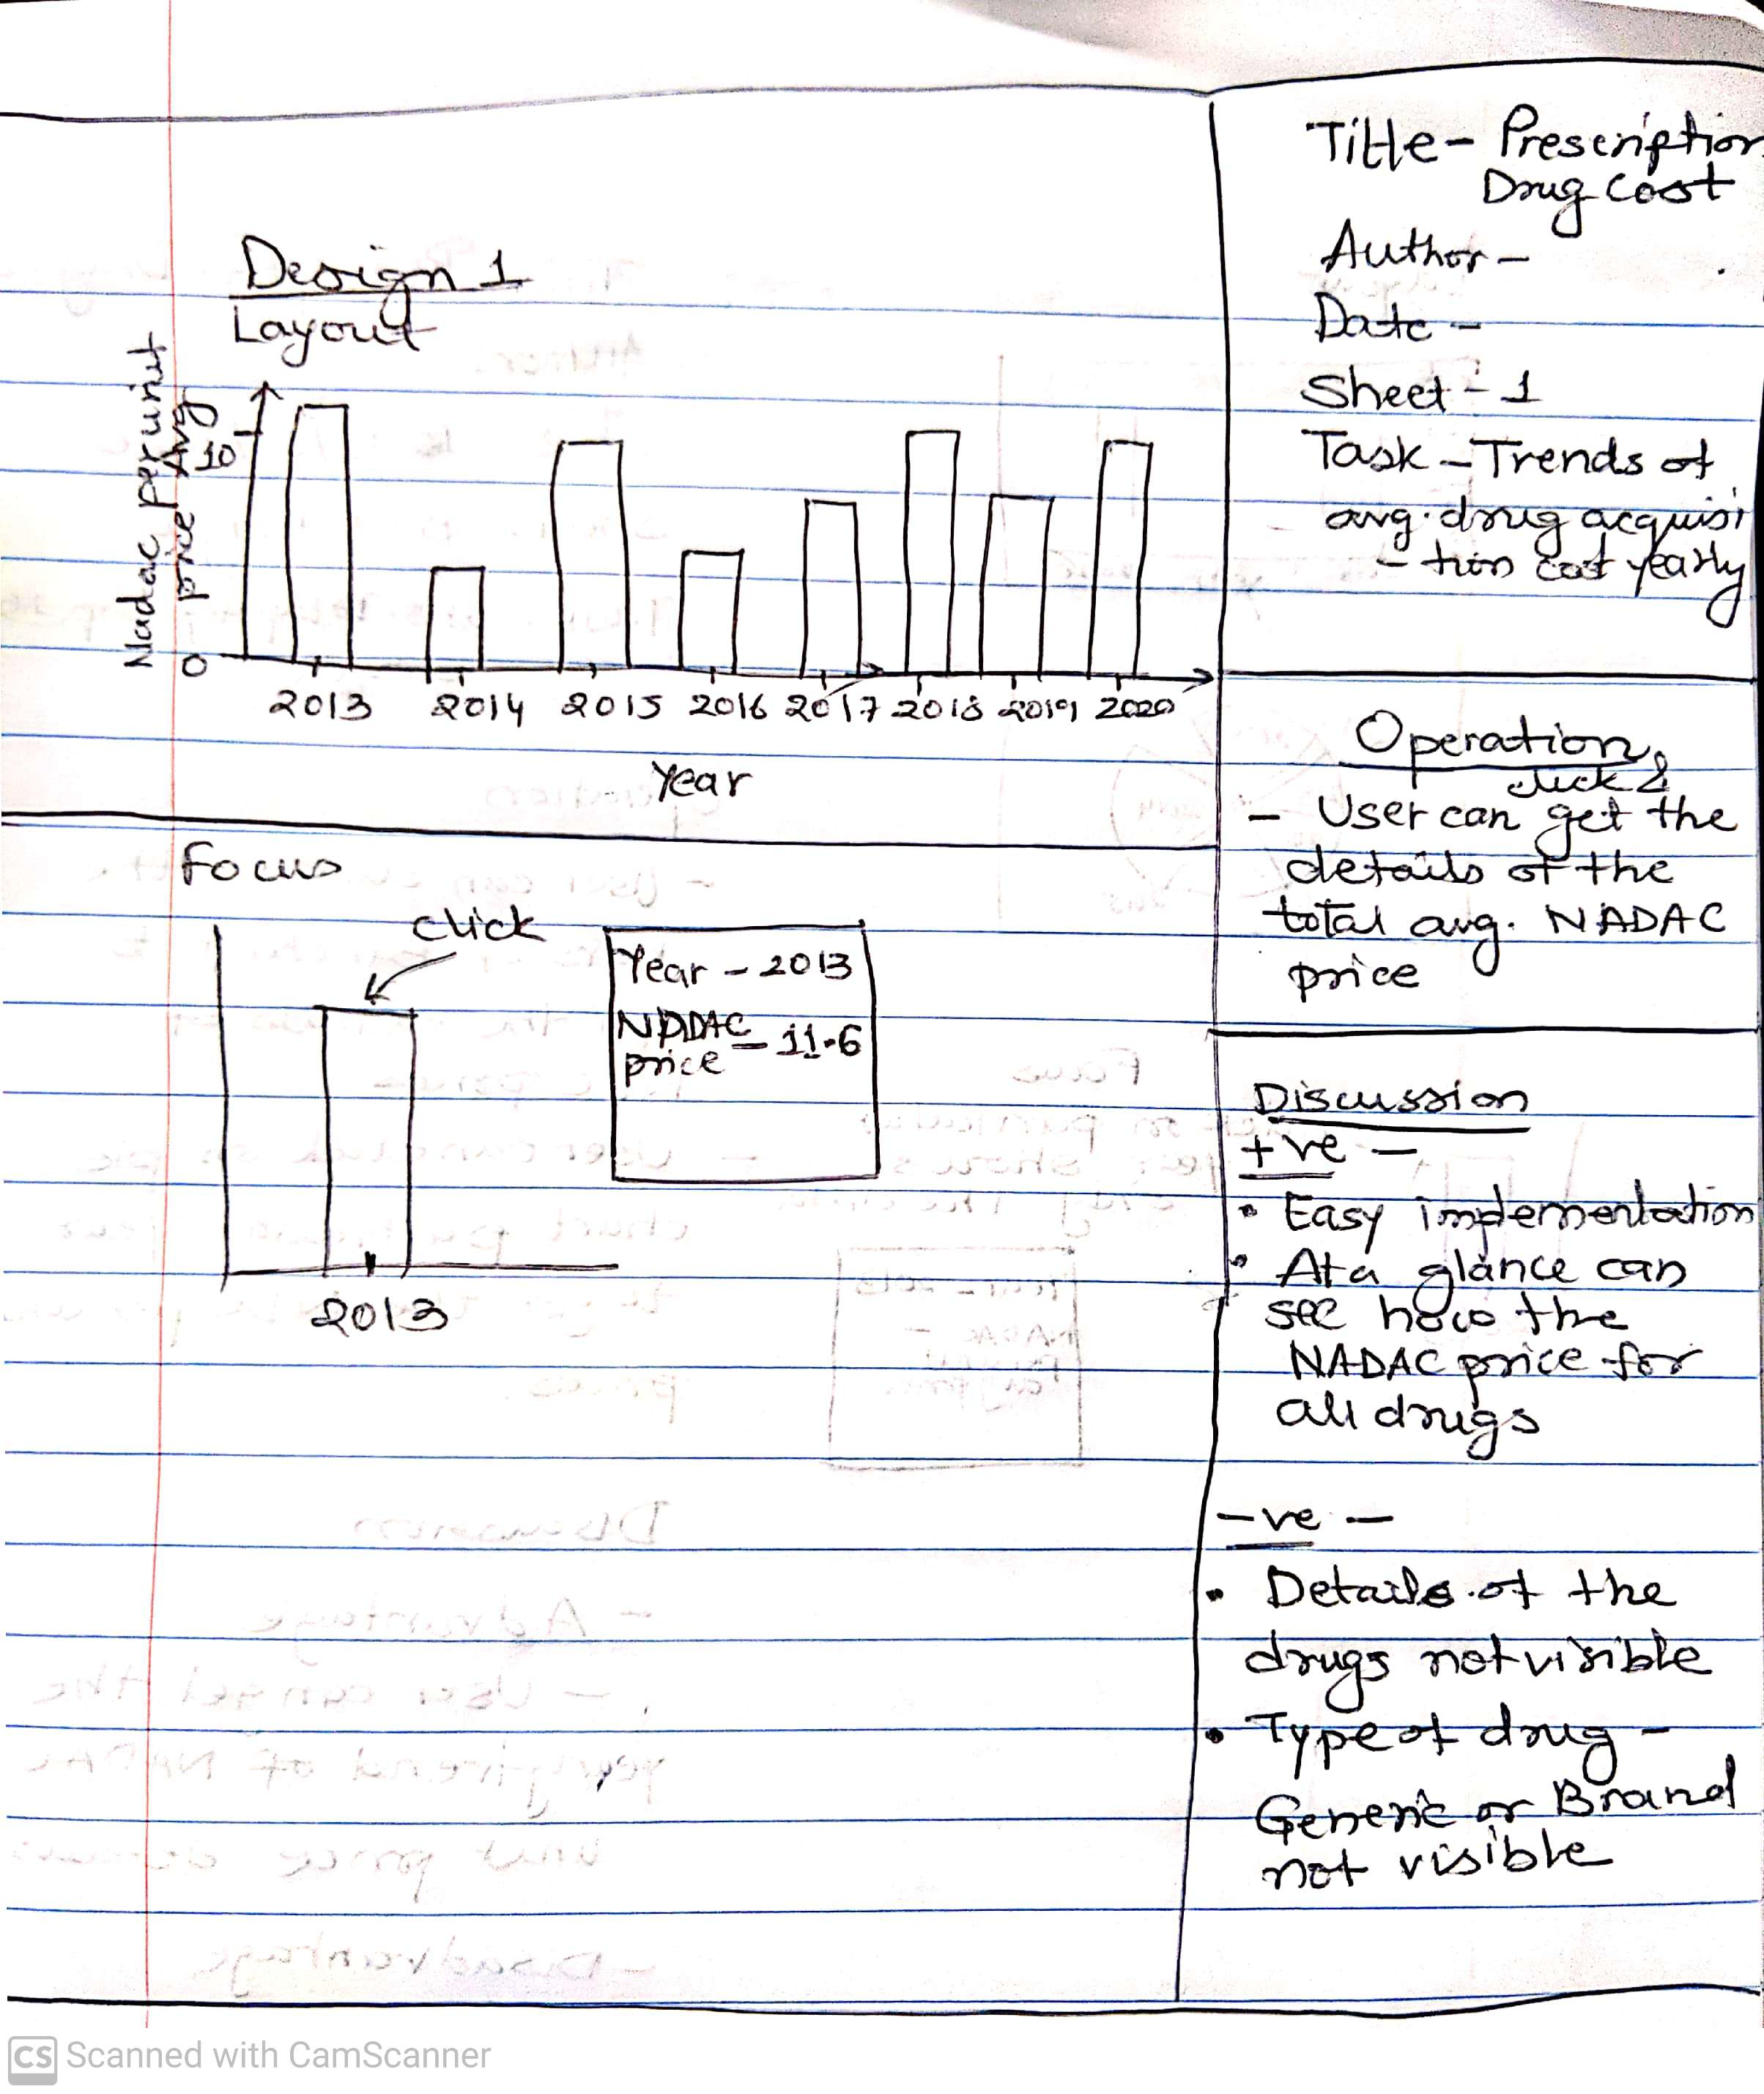 Design 1
Layout
Nadac per unit
price Avg
10
0
2013 2014 2015 2016 2017 2018 2019 2020
Year
Focus
click
Year - 2013
NADAC
price - 11.6
2013
Title - Prescription
Drug Cost
Author -
Date -
Sheet - 1
Task - Trends of
avg. drug acquisi
- tion cost yearly
Operation
click &
- User can get the
details of the
total avg. NADAC
price
Discussion
+ve -
• Easy implementation
• At a glance can
see how the
NADAC price for
all drugs
-ve -
• Details of the
drugs not visible
• Type of drug -
Generic or Brand
not visible
CS Scanned with CamScanner